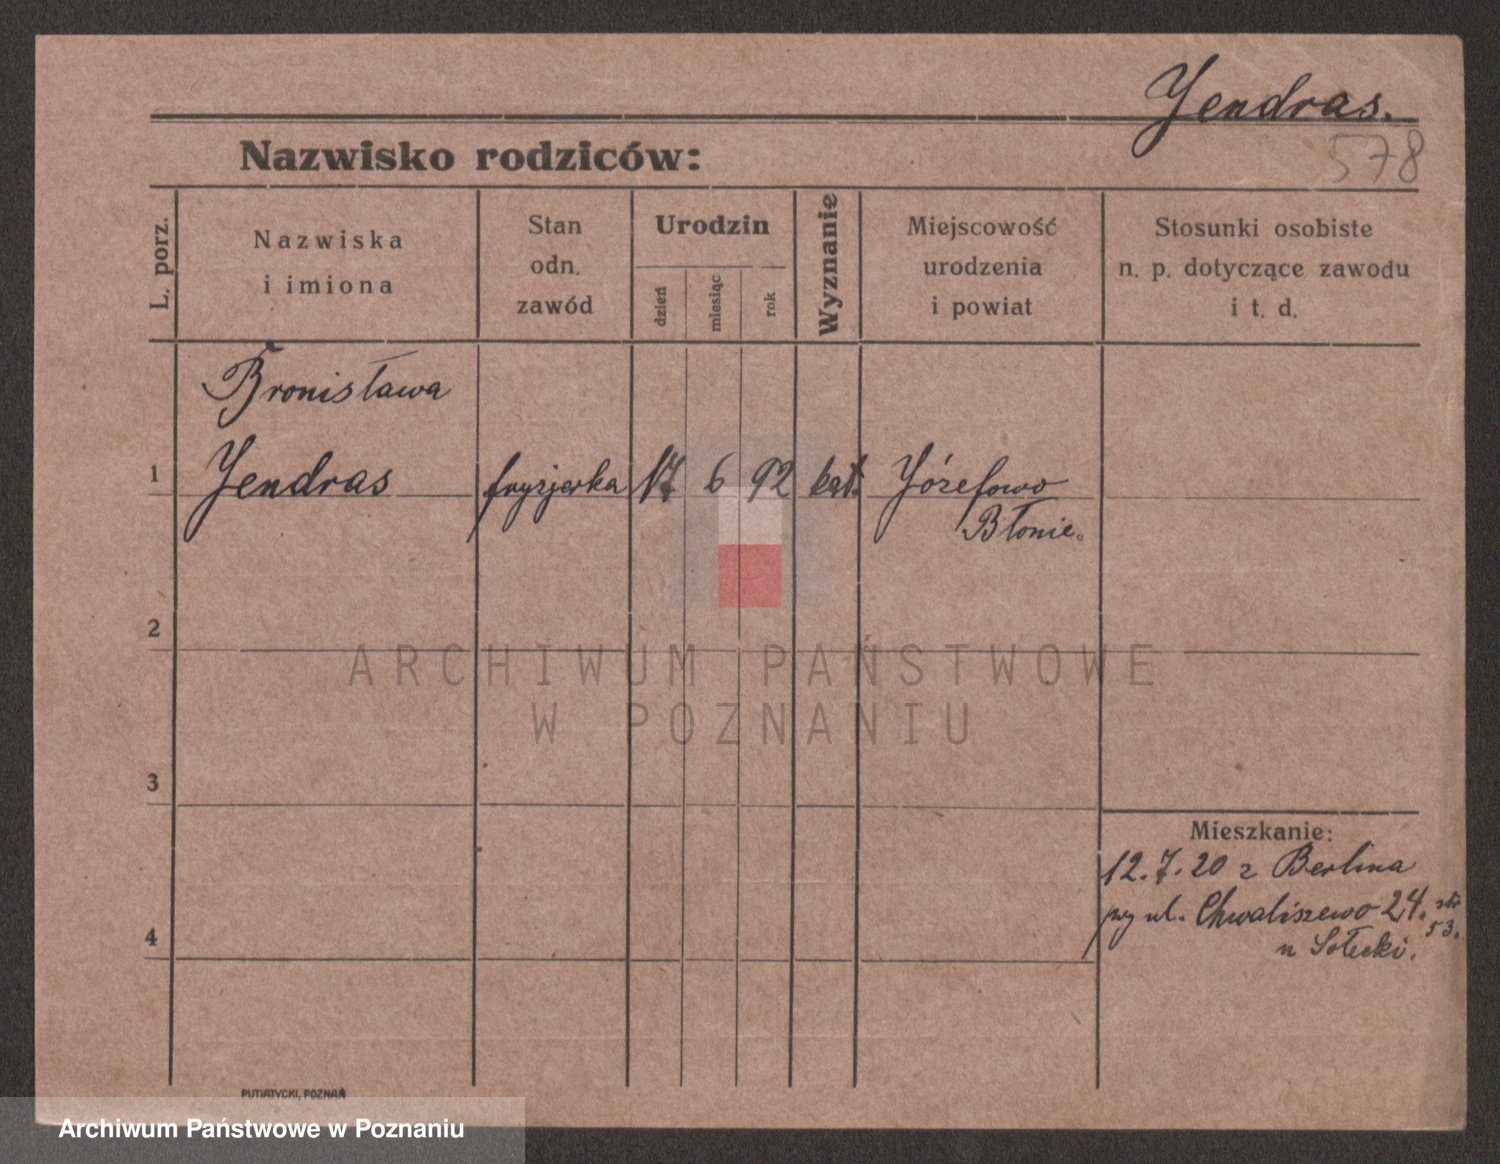 Yendras.
578
Nazwisko rodziców:
L. porz.
Nazwiska
i imiona
Stan
odn.
zawód
Urodzin
dzień
miesiąc
rok
Wyznanie
Miejscowość
urodzenia
i powiat
Stosunki osobiste
n. p. dotyczące zawodu
i t. d.
Bronisława
1 Yendras fryzjerka 17 6 92 kat. Józefowo
Błonie.
2
ARCHIWUM PAŃSTWOWE
W POZNANIU
3
Mieszkanie:
12.7.20 z Berlina
przy ul. Chwaliszewo 24. str
53.
u Sołecki.
4
PUTIATYCKI, POZNAŃ
Archiwum Państwowe w Poznaniu